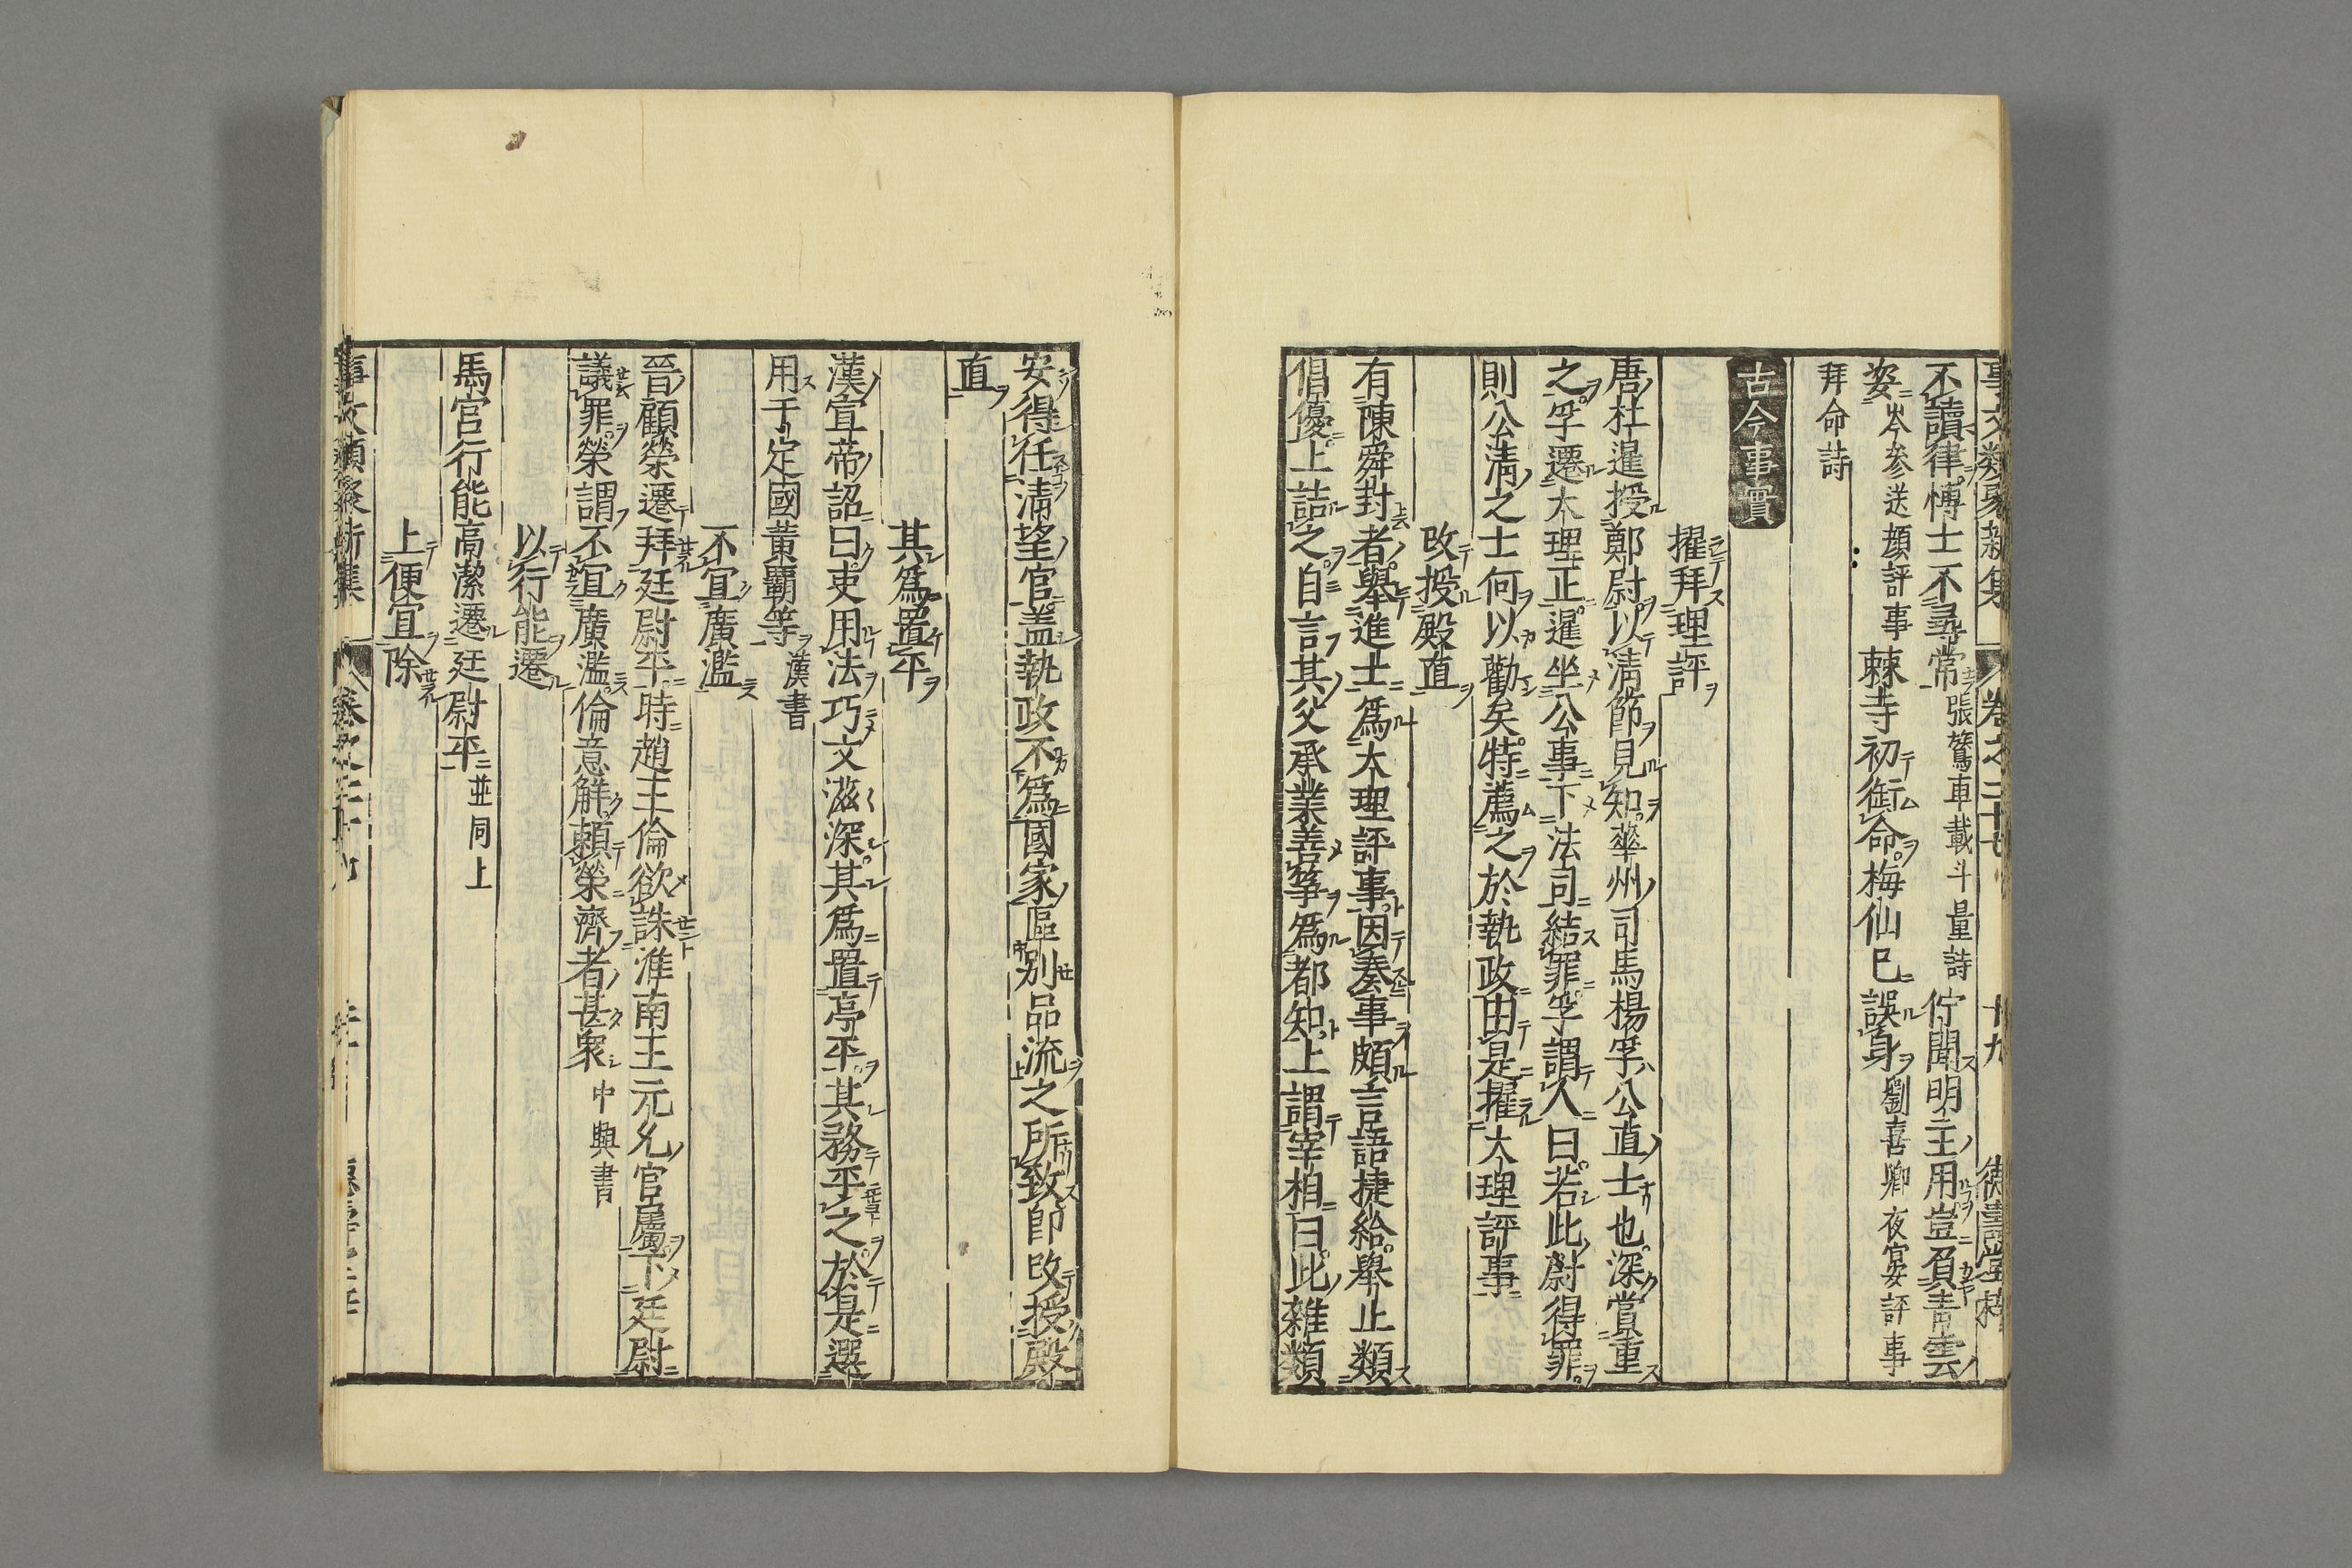 事文類聚新集 卷之三十七 十九 德壽堂梓
不讀律博士不尋常張鷟車載斗量詩佇聞明主用豈負青雲
姿岑參送顔評事棘寺初銜命梅仙已誤身劉喜卿夜宴評事
拜命詩
古今事實
擢拜理評
唐杜暹授鄭尉以清節見知華州司馬楊孚公直士也深賞重
之孚遷大理正暹坐公事下法司結罪孚謂人曰若此尉得罪
則公淸之士何以勸矣特薦之於執政由是擢大理評事
改授殿直
有陳舜封者舉進士爲大理評事因奏事頗言語捷給舉止類
倡優上詰之自言其父承業善箏爲都知上謂宰相曰此雜類
安得任淸望官盖執政不爲國家區別品流之所致卽改授殿
直
其爲置平
漢宣帝詔曰吏用法巧文滋深其爲置亭平其務平之於是選
用于定國黃霸等漢書
不宜廣濫
晉顧榮遷拜廷尉平時趙王倫欲誅淮南王元允官屬下廷尉
議罪榮謂不宜廣濫倫意解賴榮濟者甚衆中興書
以行能遷
馬官行能高潔遷廷尉平並同上
上便宜除
事文類聚新集 卷之三十